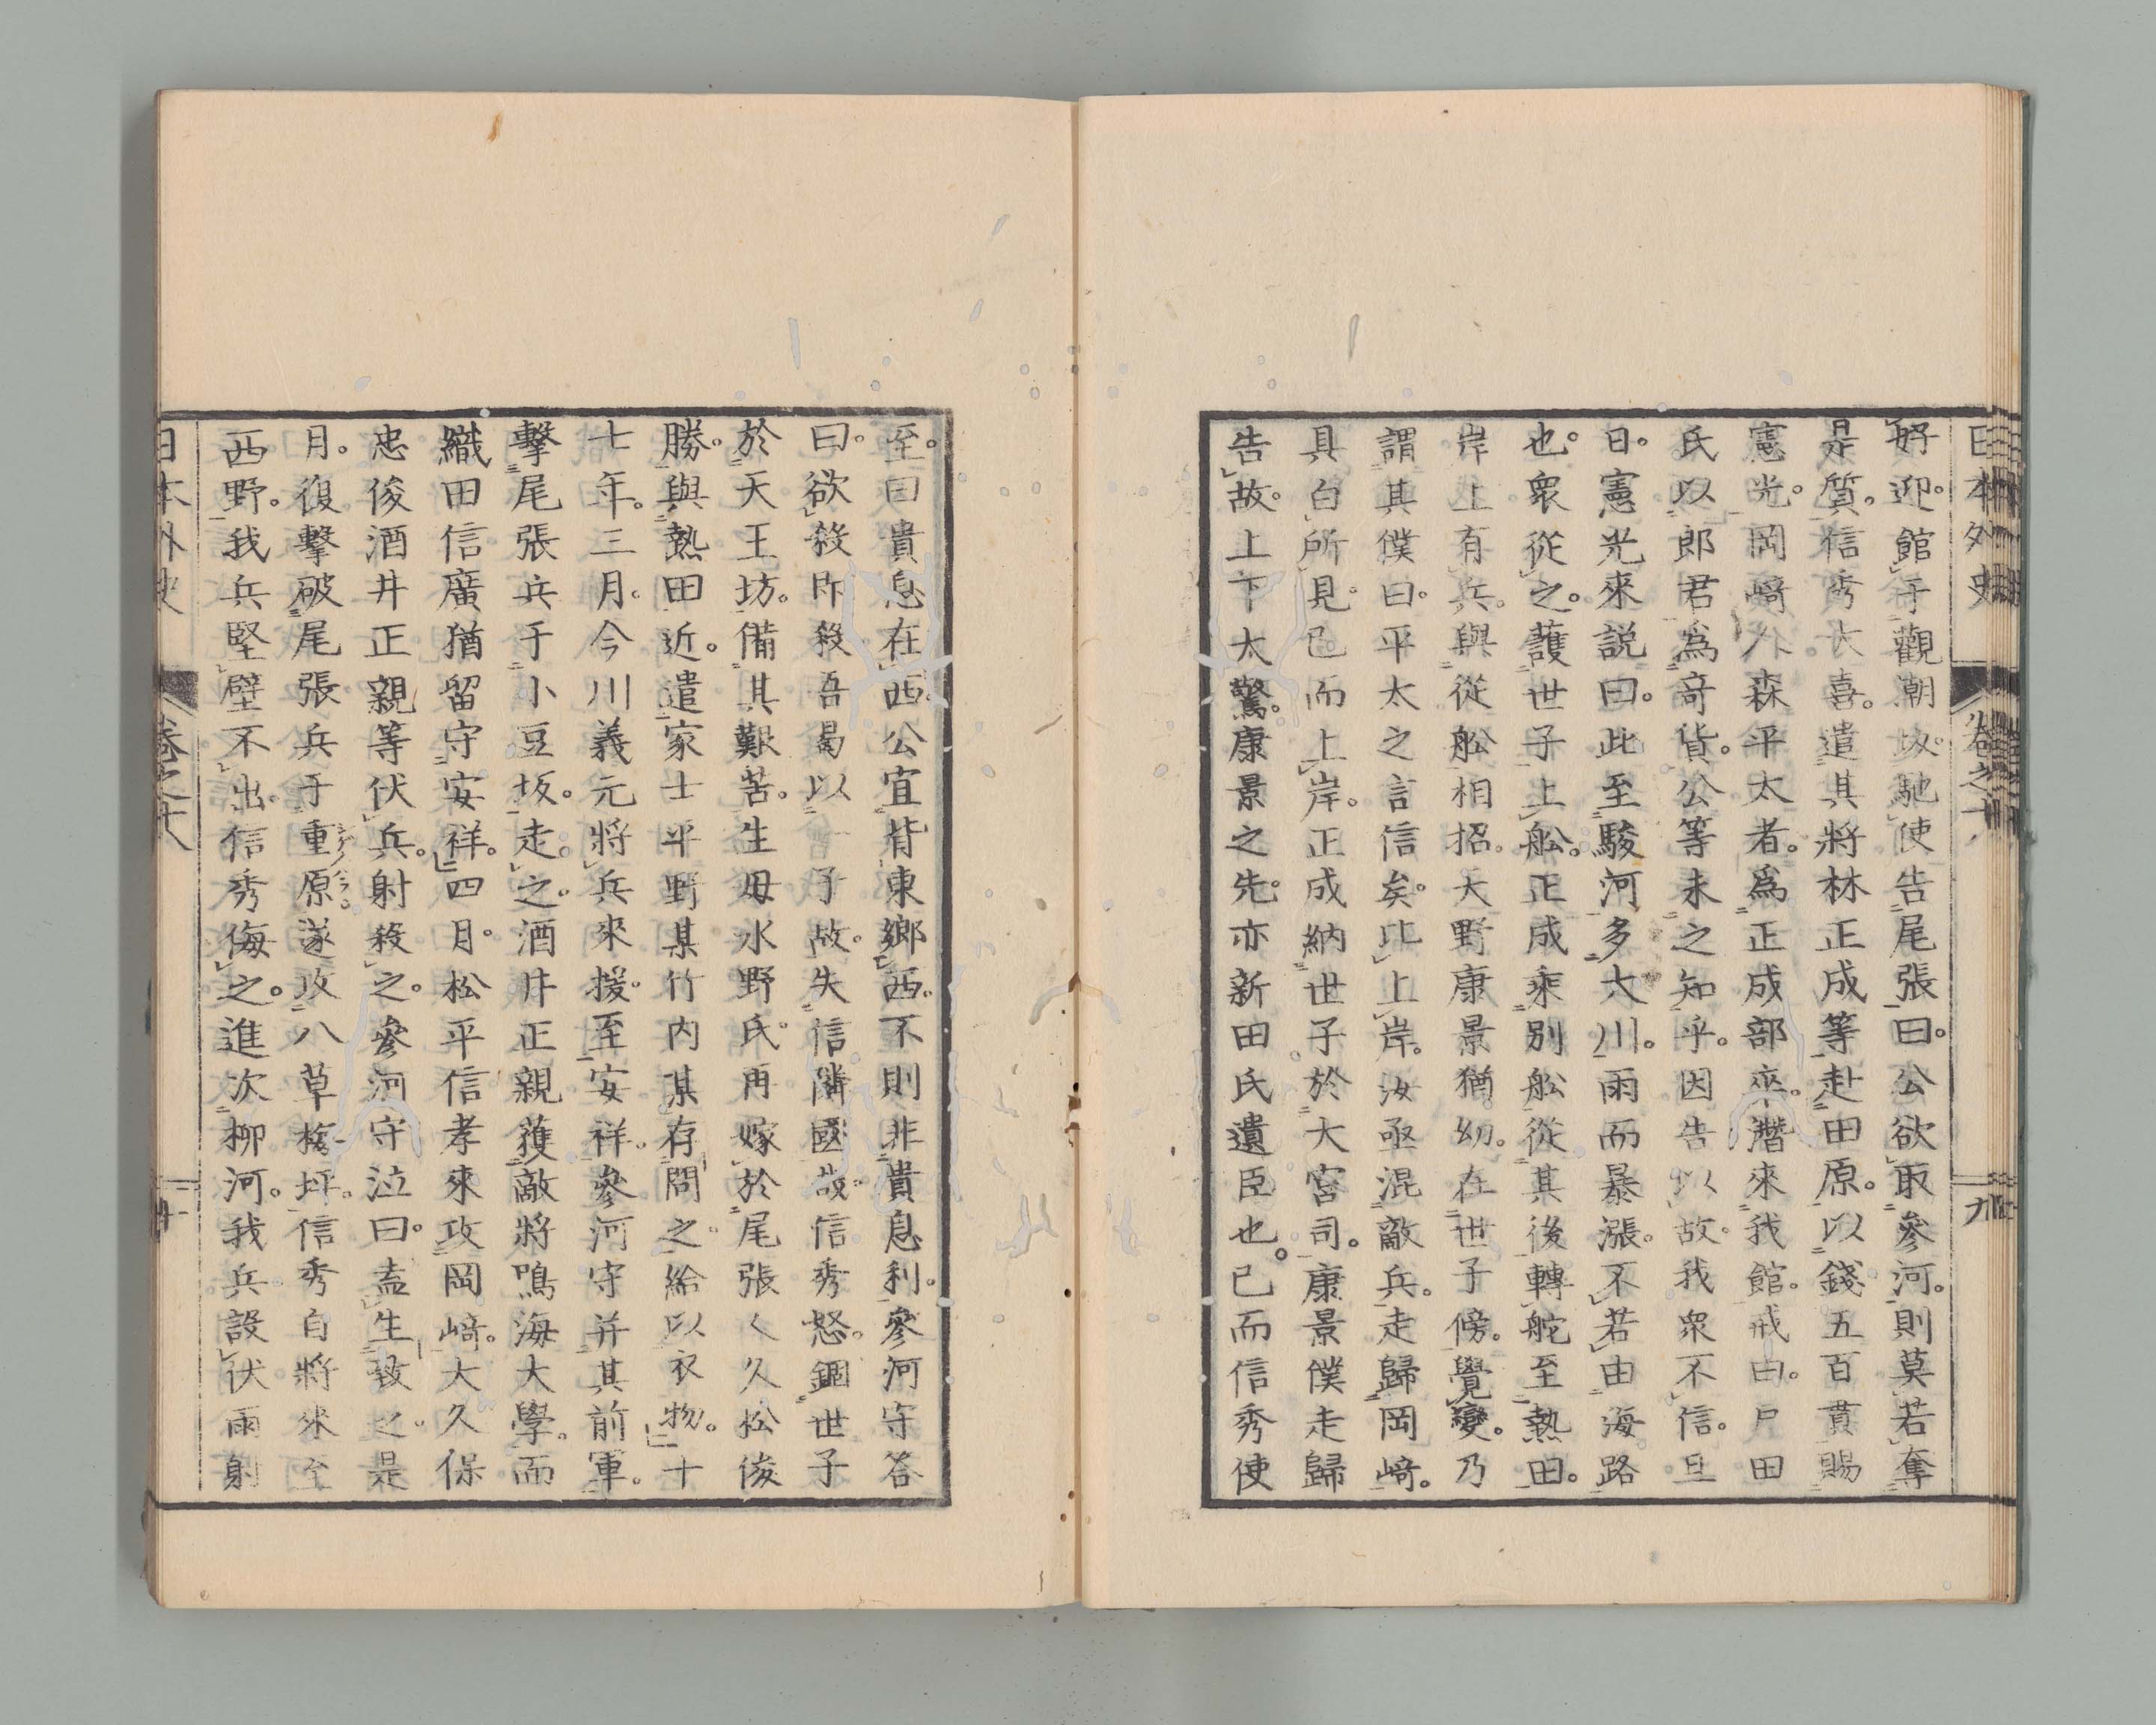 日本外史
卷之十八
九
好迎。館于觀潮坂。馳使告尾張曰。公欲取參河。則莫若奪
是質。信秀大喜。遣其將林正成等赴田原。以錢五百貫賜
憲光。岡﨑人森平太者。爲正成部卒。潛來我館。戒曰。戶田
氏以郎君爲奇貨。公等未之知乎。因告以故。我衆不信。旦
日。憲光來説曰。此至駿河多大川。雨而暴漲。不若由海路
也。衆從之。護世子上舩。正成乘別舩從其後轉舵至熱田。
岸上有兵。與從舩相招。天野康景猶幼。在世子傍。覺變。乃
謂其僕曰。平太之言信矣。比上岸。汝亟混敵兵。走歸岡﨑。
具白所見。已而上岸。正成納世子於大宮司。康景僕走歸
告故。上下大驚。康景之先。亦新田氏遺臣也。已而信秀使
至。曰貴息在西。公宜背東鄉西。不則非貴息利。參河守答
曰。欲殺卽殺。吾曷以子故。失信隣國哉。信秀怒。錮世子
於天王坊。備其艱苦。生母水野氏。再嫁於尾張人久松俊
勝。與熱田近。遣家士平野某竹內某存問之。給以衣物。十
七年。三月。今川義元將兵來援。至安祥。參河守并其前軍。
擊尾張兵于小豆坂。走之。酒井正親獲敵將鳴海大學。而
織田信廣猶留守安祥。四月。松平信孝來攻岡﨑。大久保
忠俊酒井正親等伏兵。射殺之。參河守泣曰。盍生致之。是
月。復擊破尾張兵于重原。遂攻八草梅坪。信秀自將來至
西野。我兵堅壁不出。信秀侮之。進次柳河。我兵設伏雨射
日本外史
卷之十八